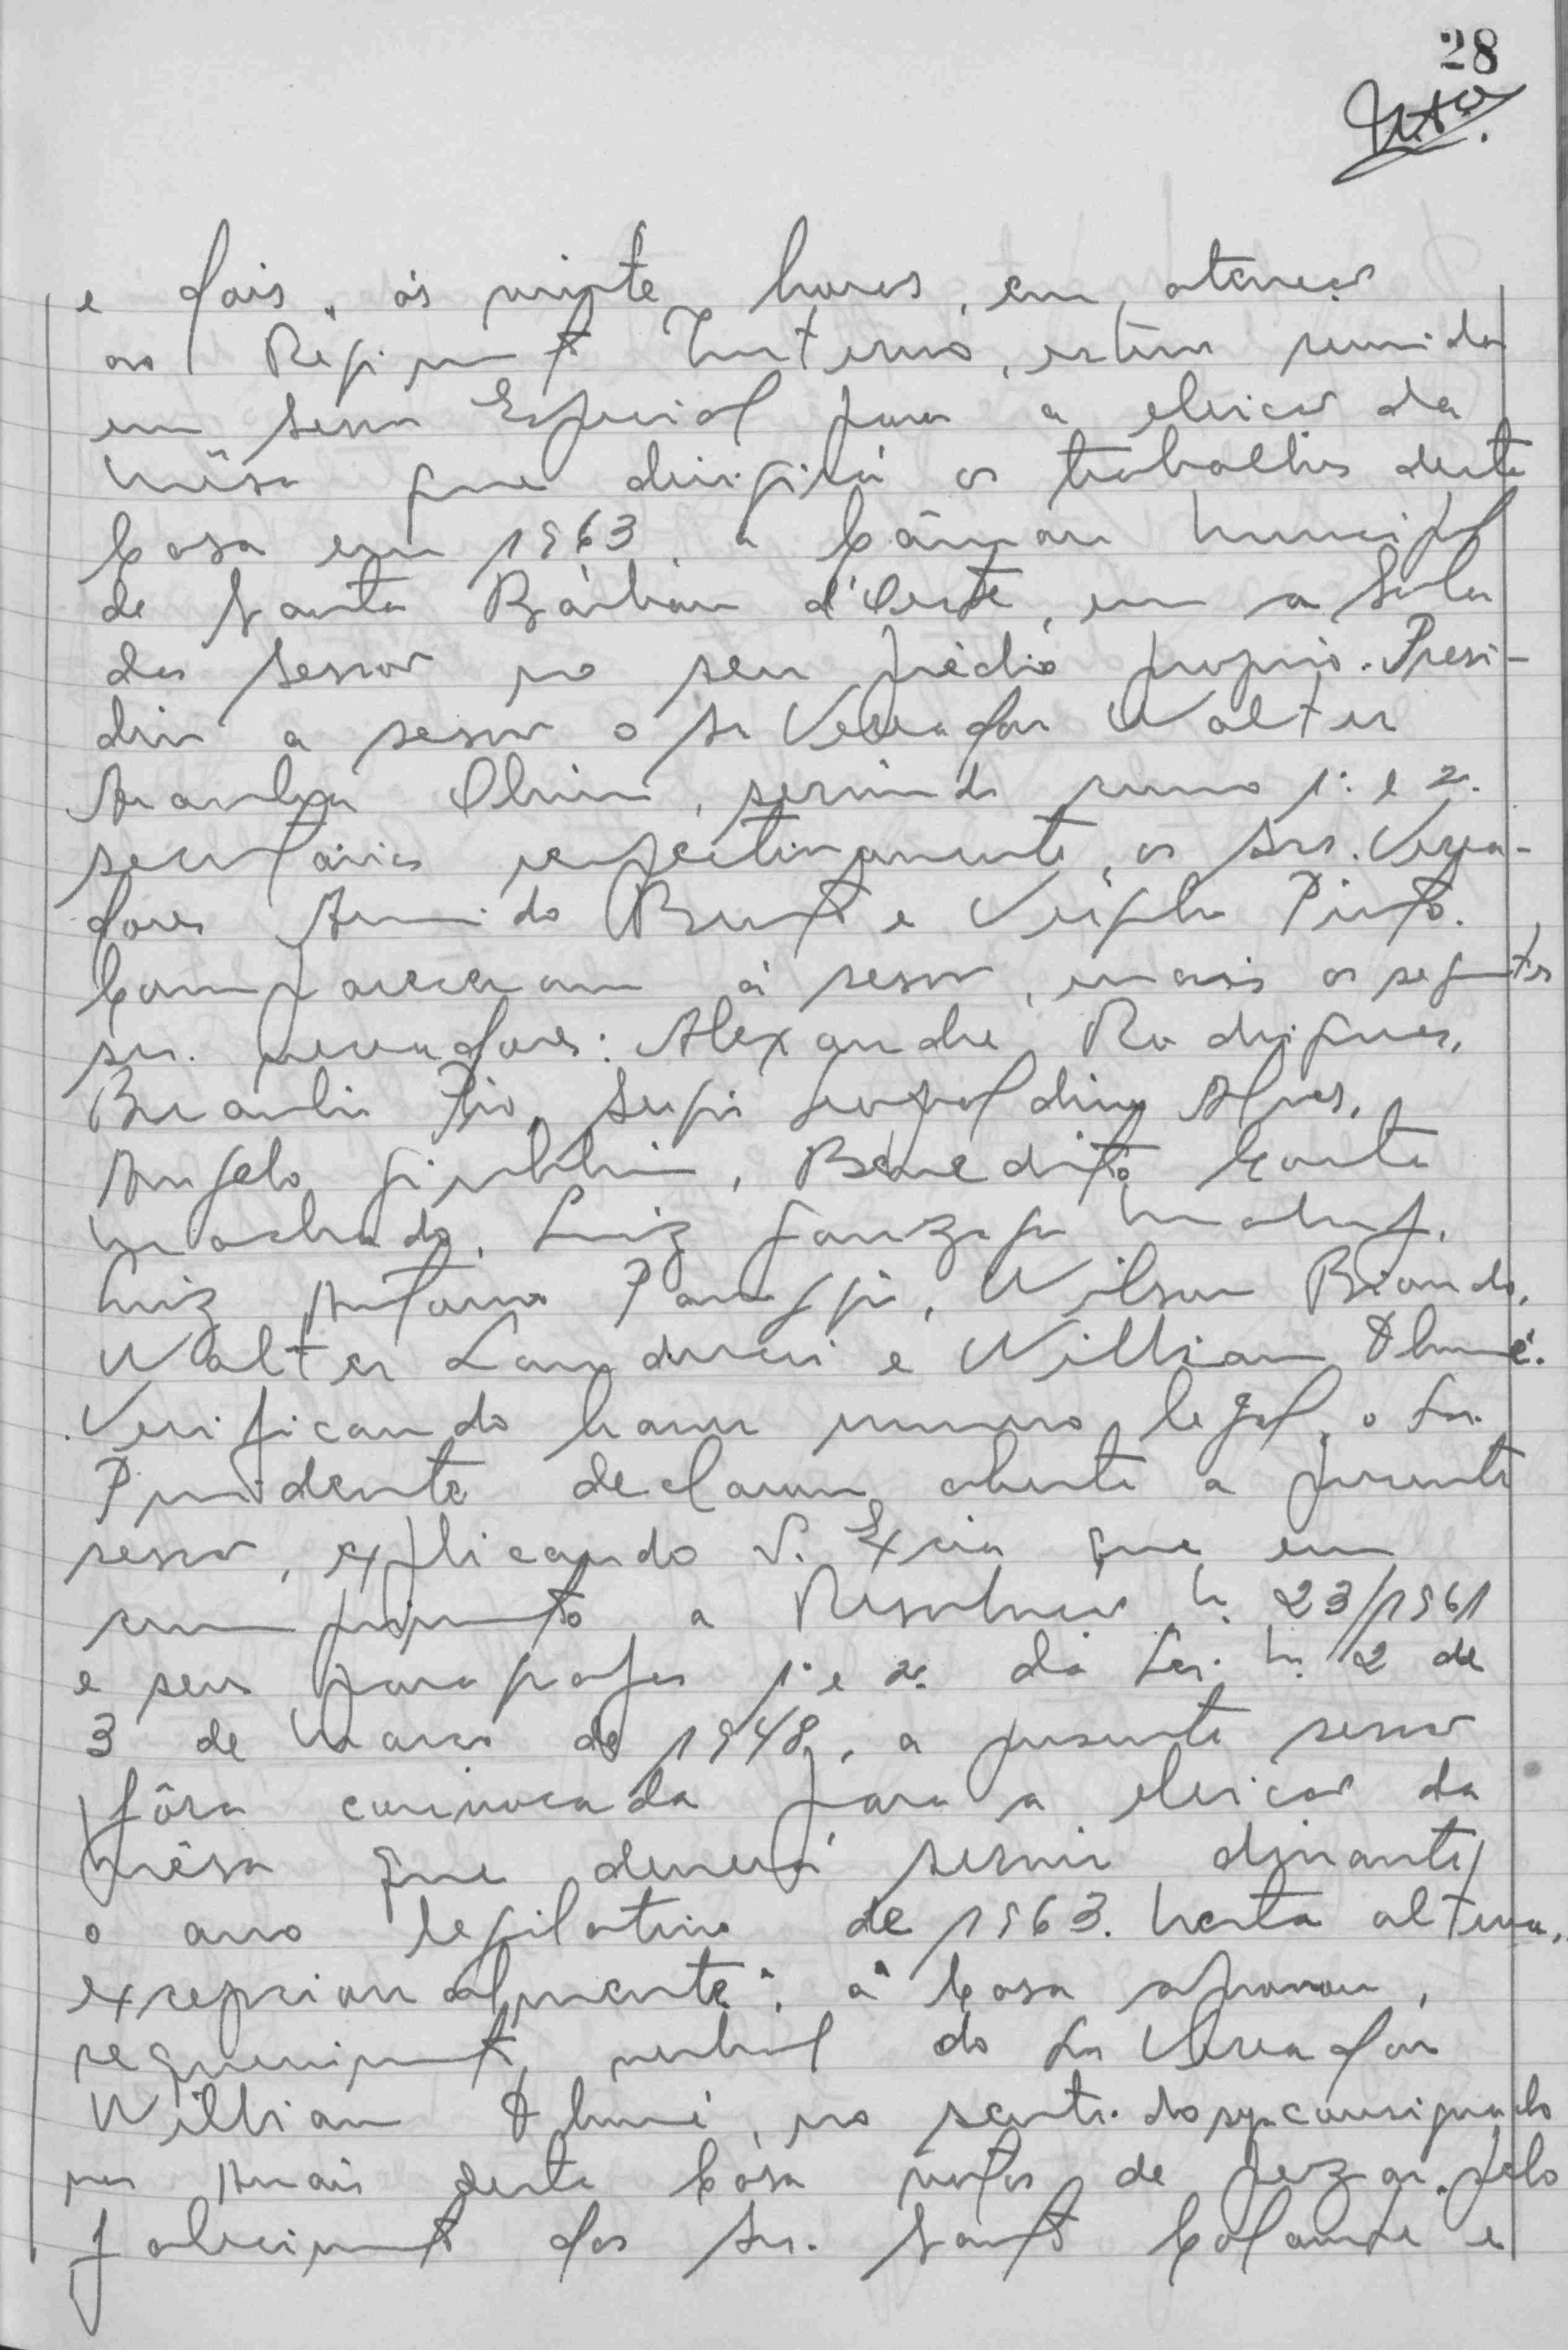 28
e dois, às vinte horas, em atenção
ao Regimento Interno, esteve reunida
em sessão Especial para a eleição da
Mêsa que dirigirá os trabalhos desta
Casa em 1963, a Câmara Municipal
de Santa Bárbara d'Oeste, em a Sala
das sessões no seu prédio proprio. Presi-
diu a sessão o Sr Vereador Walter
Araujo Oliveira, servindo como 1º e 2º
secretários respectivamente, os Srs. Verea-
dores Armindo Brunt e Virgilio Pinto.
Compareceram à sessão, mais os seguintes
srs. vereadores: Alexandre Rodrigues,
Braulio Pio, Sergio Leopoldino Alves,
Angelo Giubbini, Benedito Costa
Machado, Luiz Gonzaga Maluf,
Luiz Antonio Panaggio, Wilson Biondo,
Walter Landucci e Willian Thomé.
Verificando haver numero legal, o Sr.
Presidente declarou aberta a presente
sessão, explicando S. Excia que em
cumprimento a Resolução n. 23/1961
e seus paragrafos 1º e 2º da Lei n. 2 de
3 de Março de 1948, a presente sessão
fôra convocada para a eleição da
Mêsa que deverá servir durante
o ano legislativo de 1963. Nesta altura,
excepcionalmente, a Casa aprovou,
requerimento verbal do Sr Vereador
Willian Thomé, no sentido consignado
nos Anais desta Casa votos de pezar pelo
falecimento dos Srs. Santo e